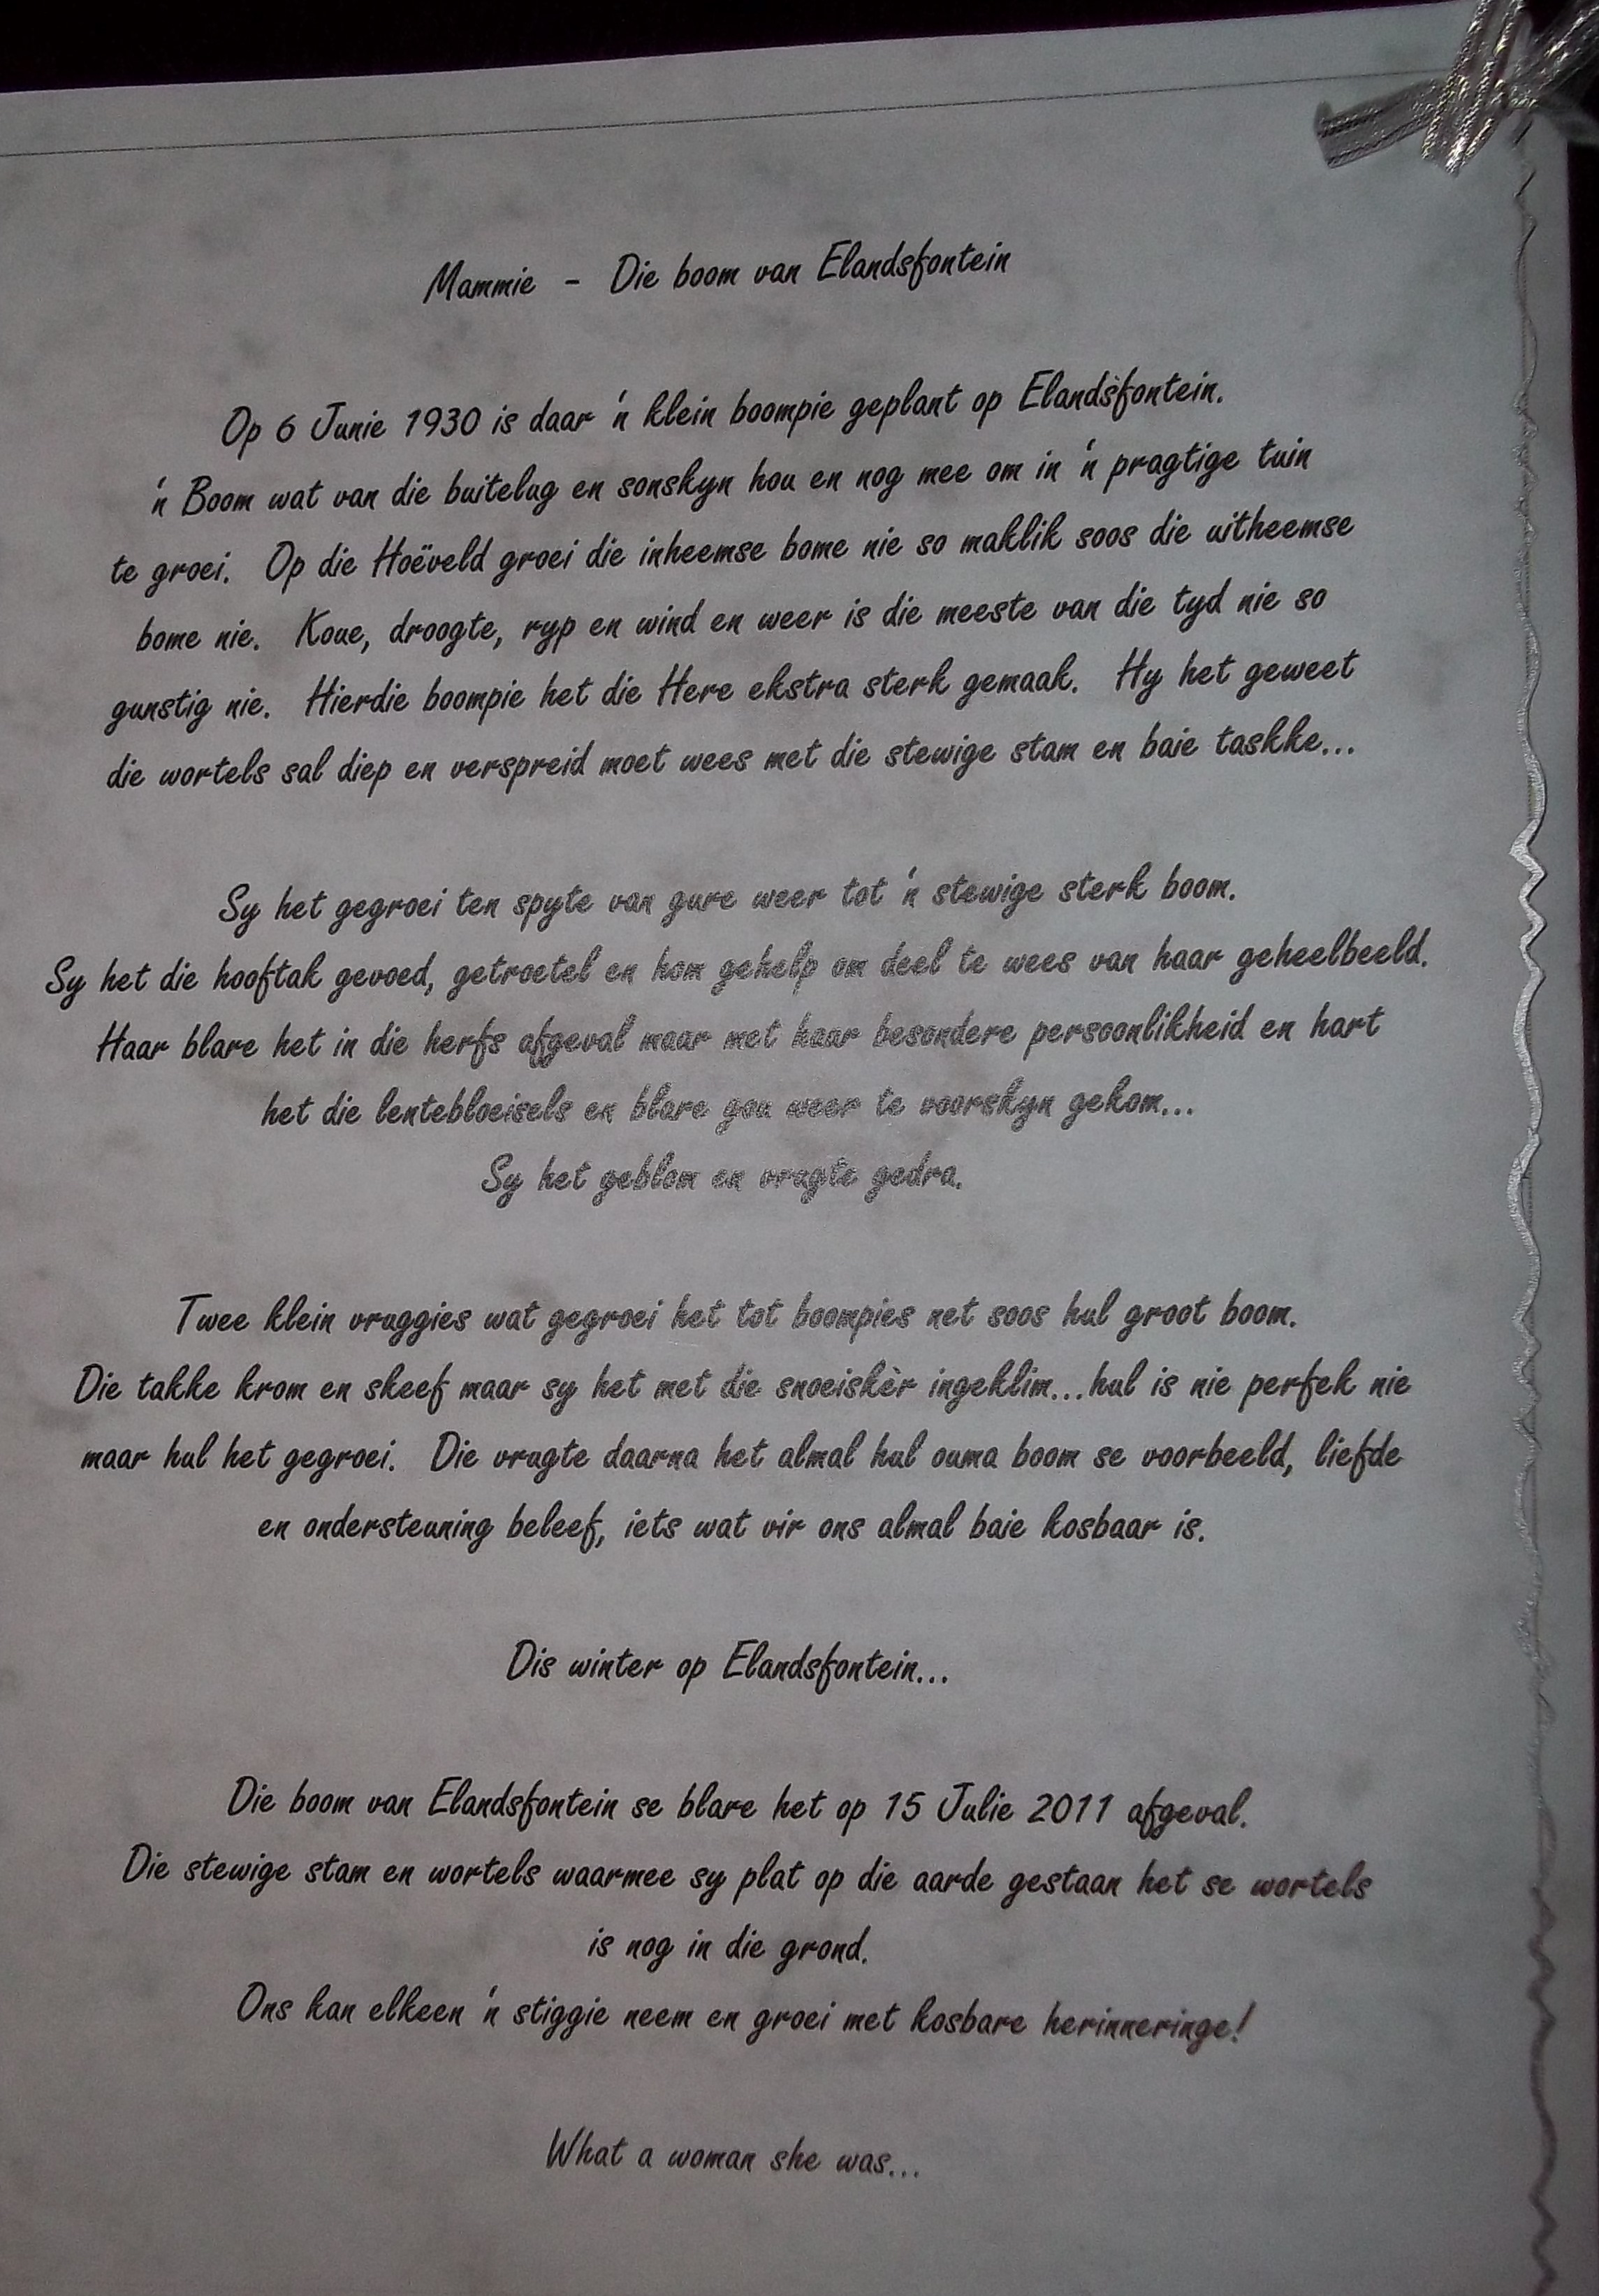 Mammie - Die boom van Elandsfontein
Op 6 Junie 1930 is daar 'n klein boompie geplant op Elandsfontein.
'n Boom wat van die buitelug en sonskyn hou en nog mee om in 'n pragtige tuin
te groei. Op die Hoëveld groei die inheemse bome nie so maklik soos die uitheemse
bome nie. Koue, droogte, ryp en wind en weer is die meeste van die tyd nie so
gunstig nie. Hierdie boompie het die Here ekstra sterk gemaak. Hy het geweet
die wortels sal diep en verspreid moet wees met die stewige stam en baie taskke...
Sy het gegroei ten spyte van gure weer tot 'n stewige sterk boom.
Sy het die hooftak gevoed, getroetel en hom gehelp om deel te wees van haar geheelbeeld.
Haar blare het in die herfs afgeval maar met haar besondere persoonlikheid en hart
het die lentebloeisels en blare gou weer te voorskyn gekom...
Sy het geblom en vrugte gedra.
Twee klein vruggies wat gegroei het tot boompies net soos hul groot boom.
Die takke krom en skeef maar sy het met die snoeiskèr ingeklim...hul is nie perfek nie
maar hul het gegroei. Die vrugte daarna het almal hul ouma boom se voorbeeld, liefde
en ondersteuning beleef, iets wat vir ons almal baie kosbaar is.
Dis winter op Elandsfontein...
Die boom van Elandsfontein se blare het op 15 Julie 2011 afgeval.
Die stewige stam en wortels waarmee sy plat op die aarde gestaan het se wortels
is nog in die grond.
Ons kan elkeen 'n stiggie neem en groei met kosbare herinneringe!
What a woman she was...